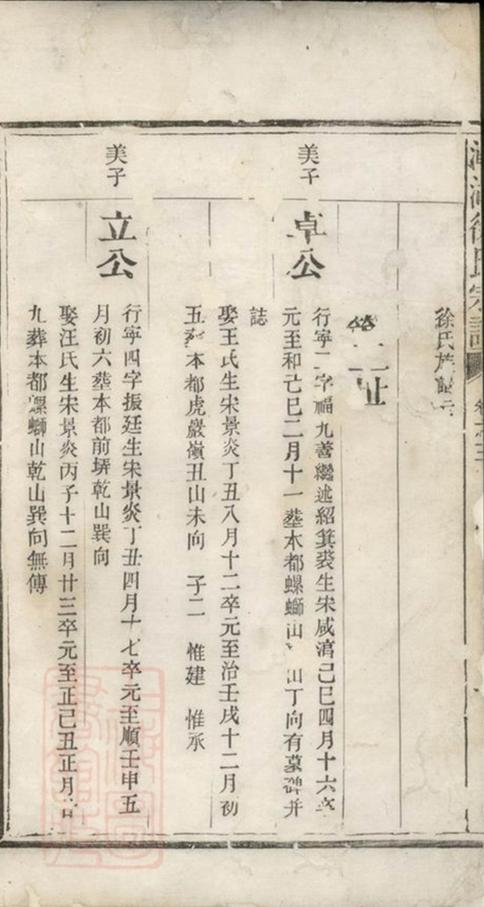 徐氏宗譜
徐氏
第二址
美子
卓公
行寧二字福九善繼述紹箕裘生宋咸淳己巳四月十六卒
元至和己巳二月十一塟本都螺螄山 山丁向有墓碑并
誌
娶王氏生宋景炎丁丑八月十二卒元至治壬戌十二月初
五 本都虎巖嶺丑山未向 子二 惟建 惟承
美子
立公
行寧四字振廷生宋景炎丁丑四月十七卒元至順壬申五
月初六塟本都前塝乾山巽向
娶汪氏生宋景炎丙子十二月廿三卒元至正己丑正月
九葬本都螺螄山乾山巽向無傳